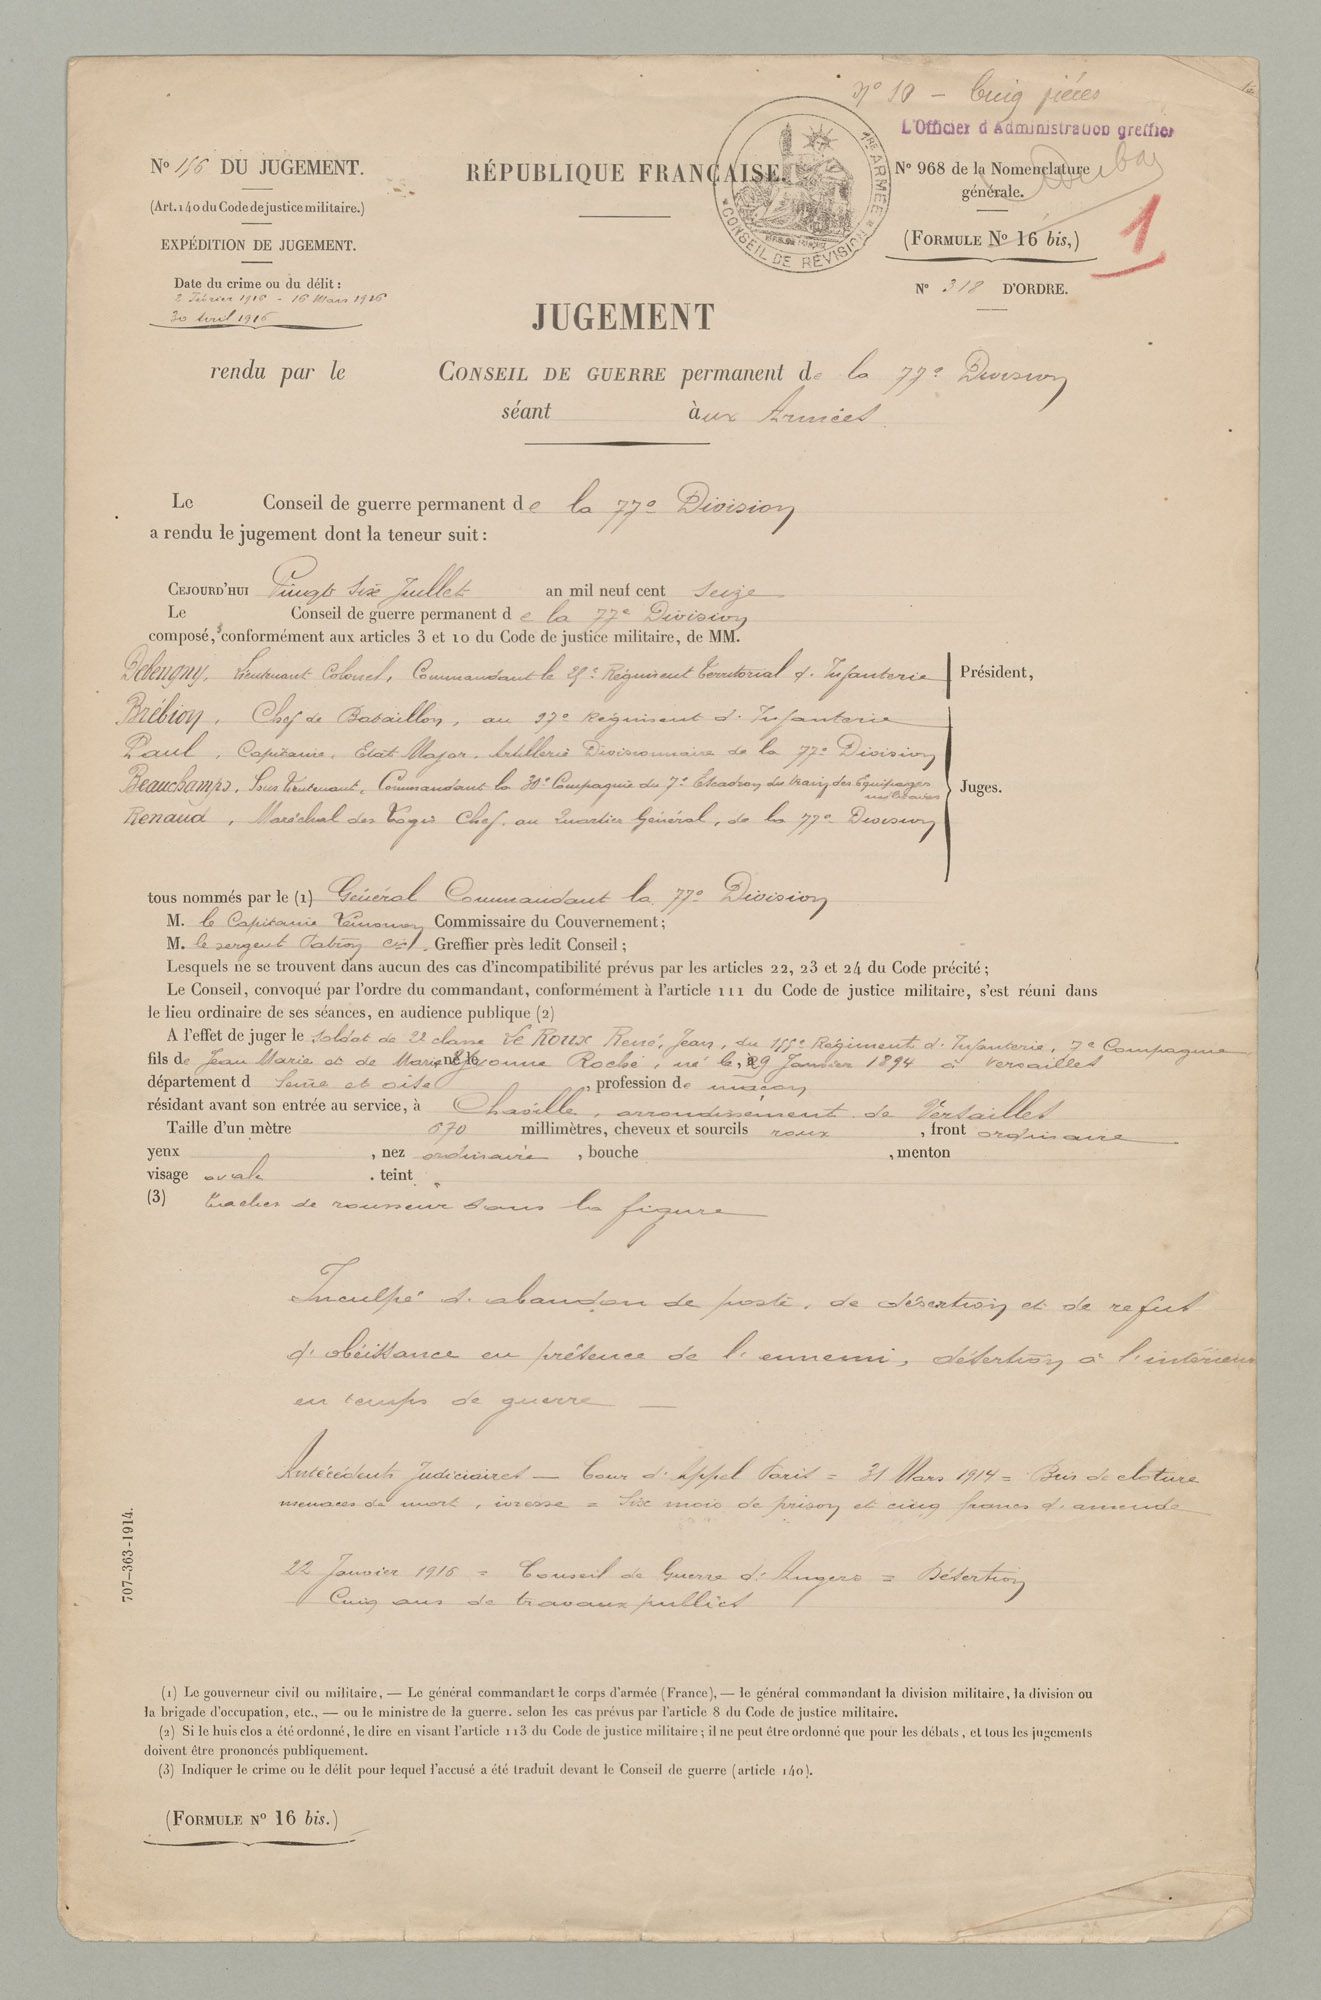 Nº 10 - Cinq pièces
L'Officier d'Administration greffier
Nº 156 DU JUGEMENT.
(Art. 140 du Code de justice militaire.)
EXPÉDITION DE JUGEMENT.
Date du crime ou du délit :
2 Février 1916 - 16 Mars 1916
30 Avril 1916
RÉPUBLIQUE FRANÇAISE.
CONSEIL DE RÉVISION * 1RE ARMÉE *
Nº 968 de la Nomenclature
générale.
(FORMULE Nº 16 bis,)
1
Nº 318 D'ORDRE.
JUGEMENT
rendu par le CONSEIL DE GUERRE permanent de la 77e Division
séant aux Armées
Le Conseil de guerre permanent de la 77e Division
a rendu le jugement dont la teneur suit :
CEJOURD'HUI Vingt Six Juillet an mil neuf cent seize
Le Conseil de guerre permanent de la 77e Division
composé, conformément aux articles 3 et 10 du Code de justice militaire, de MM.
Lieutenant Colonel, Commandant le Régiment Territorial d'Infanterie Président,
Brébion, Chef de Bataillon, au 97e Régiment d'Infanterie
Paul, Capitaine, Etat Major, Artillerie Divisionnaire de la 77e Division
Beauchamps, Sous Lieutenant, Commandant la 30e Compagnie du 7e Escadron du train des Equipages
militaires
Juges.
Renaud, Maréchal des Logis Chef, au Quartier Général, de la 77e Division
tous nommés par le (1) Général Commandant la 77e Division
M. le Capitaine Commissaire du Gouvernement ;
M. le sergent Greffier près ledit Conseil ;
Lesquels ne se trouvent dans aucun des cas d'incompatibilité prévus par les articles 22, 23 et 24 du Code précité ;
Le Conseil, convoqué par l'ordre du commandant, conformément à l'article 111 du Code de justice militaire, s'est réuni dans
le lieu ordinaire de ses séances, en audience publique (2)
A l'effet de juger le soldat de 2e classe Le Roux René, Jean, du 159e Régiment d'Infanterie, 7e Compagnie
fils de Jean Marie et de Marie Yvonne Roché, né le 29 Janvier 1894 à Versailles
département d Seine et oise, profession de maçon
résidant avant son entrée au service, à Chaville, arrondissement de Versailles
Taille d'un mètre 670 millimètres, cheveux et sourcils roux, front ordinaire
yenx , nez ordinaire , bouche , menton
visage ovale . teint
(3) taches de rousseur dans la figure
Inculpé d'abandon de poste, de désertion et de refus
d'obéissance en présence de l'ennemi, désertion à l'intérieur
en temps de guerre —
Antécédents Judiciaires — Cour d'Appel Paris = 31 Mars 1914 = Bris de cloture
menaces de mort, ivresse = Six mois de prison et cinq francs d'amende
22 Janvier 1916 = Conseil de Guerre d'Angers = Désertion
Cinq ans de travaux publics
707-363-1914.
(1) Le gouverneur civil ou militaire, — Le général commandant le corps d'armée (France), — le général commandant la division militaire, la division ou
la brigade d'occupation, etc., — ou le ministre de la guerre. selon les cas prévus par l'article 8 du Code de justice militaire.
(2) Si le huis clos a été ordonné, le dire en visant l'article 113 du Code de justice militaire ; il ne peut être ordonné que pour les débats, et tous les jugements
doivent être prononcés publiquement.
(3) Indiquer le crime ou le délit pour lequel l'accusé a été traduit devant le Conseil de guerre (article 140).
(FORMULE Nº 16 bis.)